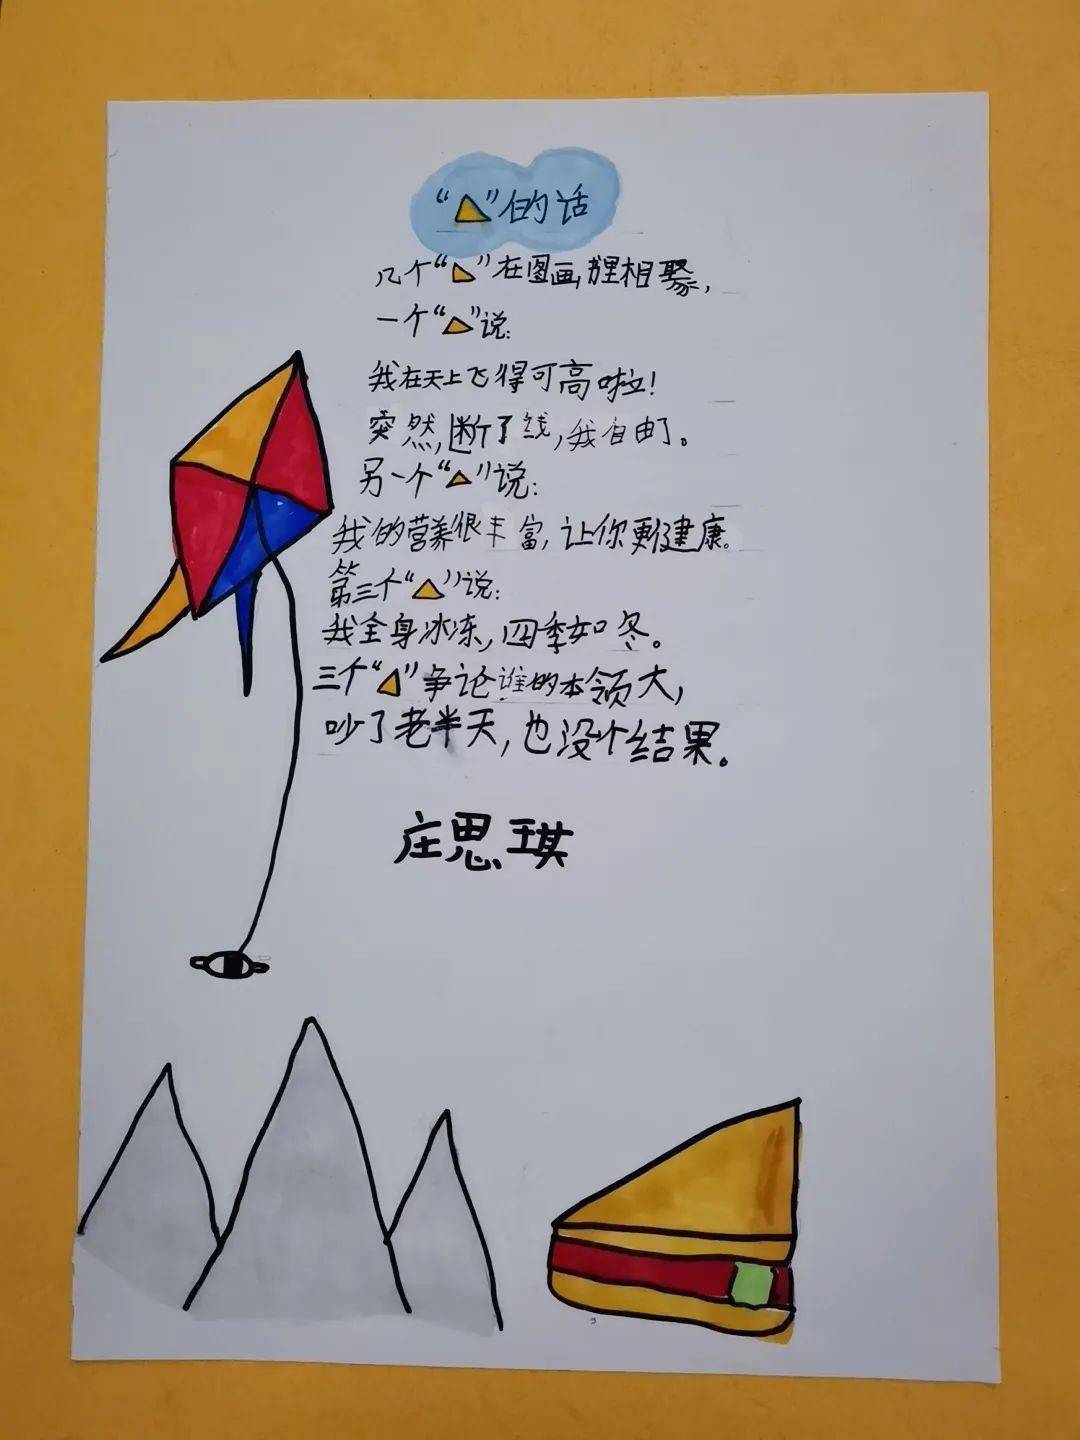 “△”的话
几个“△”在图画书里相聚，
一个“△”说：
我在天上飞得可高啦！
突然，断了线，我自由了。
另一个“△”说：
我的营养很丰富，让你更健康。
第三个“△”说：
我全身冰冻，四季如冬。
三个“△”争论谁的本领大，
吵了老半天，也没个结果。
庄思琪